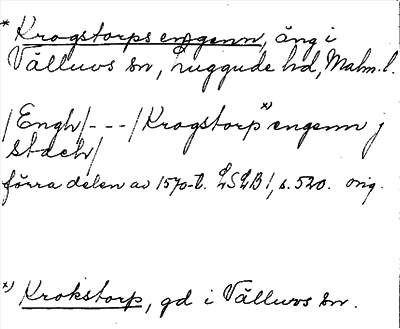 * Krogstorps engenn, äng i
Välluvs sn, Luggude hd, Malm. l.
/Engh/ - - - /Krogstorp *) engenn j
stach/
förra delen av 1570-t. LSLB 1, s. 520. orig.
*) Krokstorp, gd i Välluvs sn.